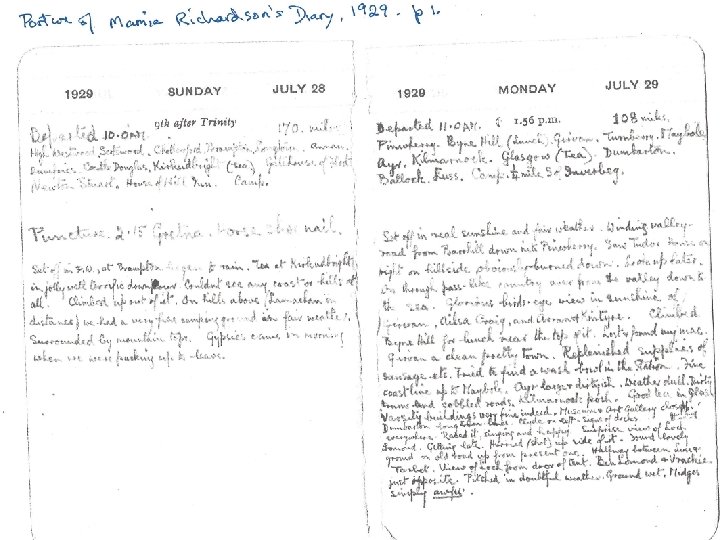 Portion of Mamie Richardson's Diary, 1929. p 1.
1929 SUNDAY JULY 28
9th after Trinity 170. miles
Departed 10.0 AM.
High Westwood
Dumfries, Castle Douglas, Kirkcudbright (tea), Gatehouse of Fleet
Newton Stuart. House of Hill Inn. Camp.
Puncture 2.15 Gretna. horse shoe nail.
Set off in at Brampton to rain. Tea at Kirkcudbright
in jolly with terrific Couldnt see any coast or hills at
all. Climbed up out of it. On hills above
distance) we had a very fine camping ground in fair weather.
Surrounded by mountain tops. Gypsies came in morning
when we were packing up to leave.
1929 MONDAY JULY 29
Departed 11.0 AM. 1.56 p.m. 108 miles.
Pinwherry. Byne Hill (lunch). Girvan. Turnberry. Maybole
Ayr. Kilmarnock. Glasgow (tea). Dumbarton.
Balloch. Luss. Camp. ½ mile S of Inverbeg.
Set off in real sunshine and fair weather. Winding valley
road from Barrhill down into Pinwherry. Saw Tudor House on
right on hillside burned down.
On through pass-like country over from the valley down to
the sea. Glorious birds-eye view in sunshine of
Girvan, Ailsa Craig, and Arran & Kintyre. Climbed
Byne Hill for lunch near the top of it. Lost & found my mac.
Girvan a clean pretty town. Replenished supplies of
sausage etc. Tried to find a wash bowl in the Station. Fine
coastline up to Maybole. Ayr large & dirtyish. Weather dull. Dirty
towns and cobbled roads. Kilmarnock posh. Good tea in Glasgow
Varsity buildings very fine indeed. Museum & Art Gallery
Dumbarton Clyde on left. Signs of docks
everywhere. Rained it, singing and happy. Surprise view of Loch
Lomond. Getting late. Hurried up side of it. Found lovely
ground in old road up from present one. Halfway between Luss &
Tarbet. View of Loch from door of tent. Ben Lomond &
just opposite. Pitched in doubtful weather. Ground wet. Midges
simply awful.